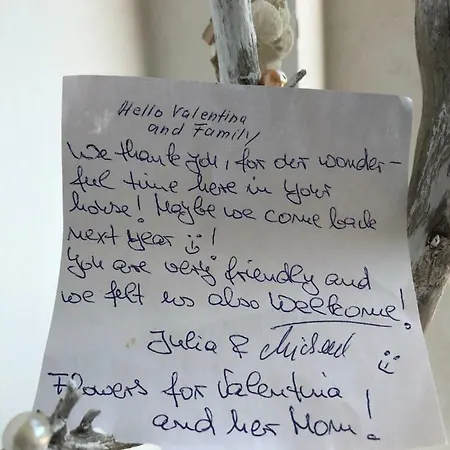 Hello Valentina
and Family
We thank you, for our wonder-
ful time here in your
house! Maybe we come back
next year :)!
You are very friendly and
we felt us also Wellcome!
Julia & Michael :)
Flowers for Valentina
and her Mom!